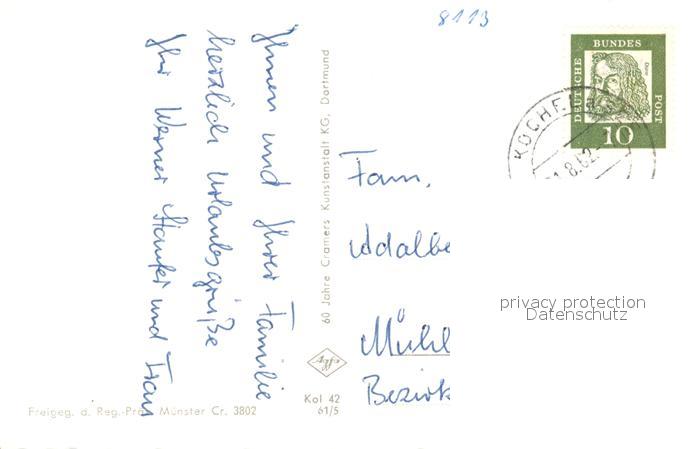 8113
DEUTSCHE BUNDES POST
Dürer
10
KOCHEL
.8.62.
Ihnen und Ihrer Familie
herzlich Urlaubsgrüße
Ihr Werner und Frau
60 Jahre Cramers Kunstanstalt KG, Dortmund
Fam.
Adalbe
Mühl
Bezirk
privacy protection
Datenschutz
Kol 42
61/5
Freigeg. d. Reg.-Präs. Münster Cr. 3802